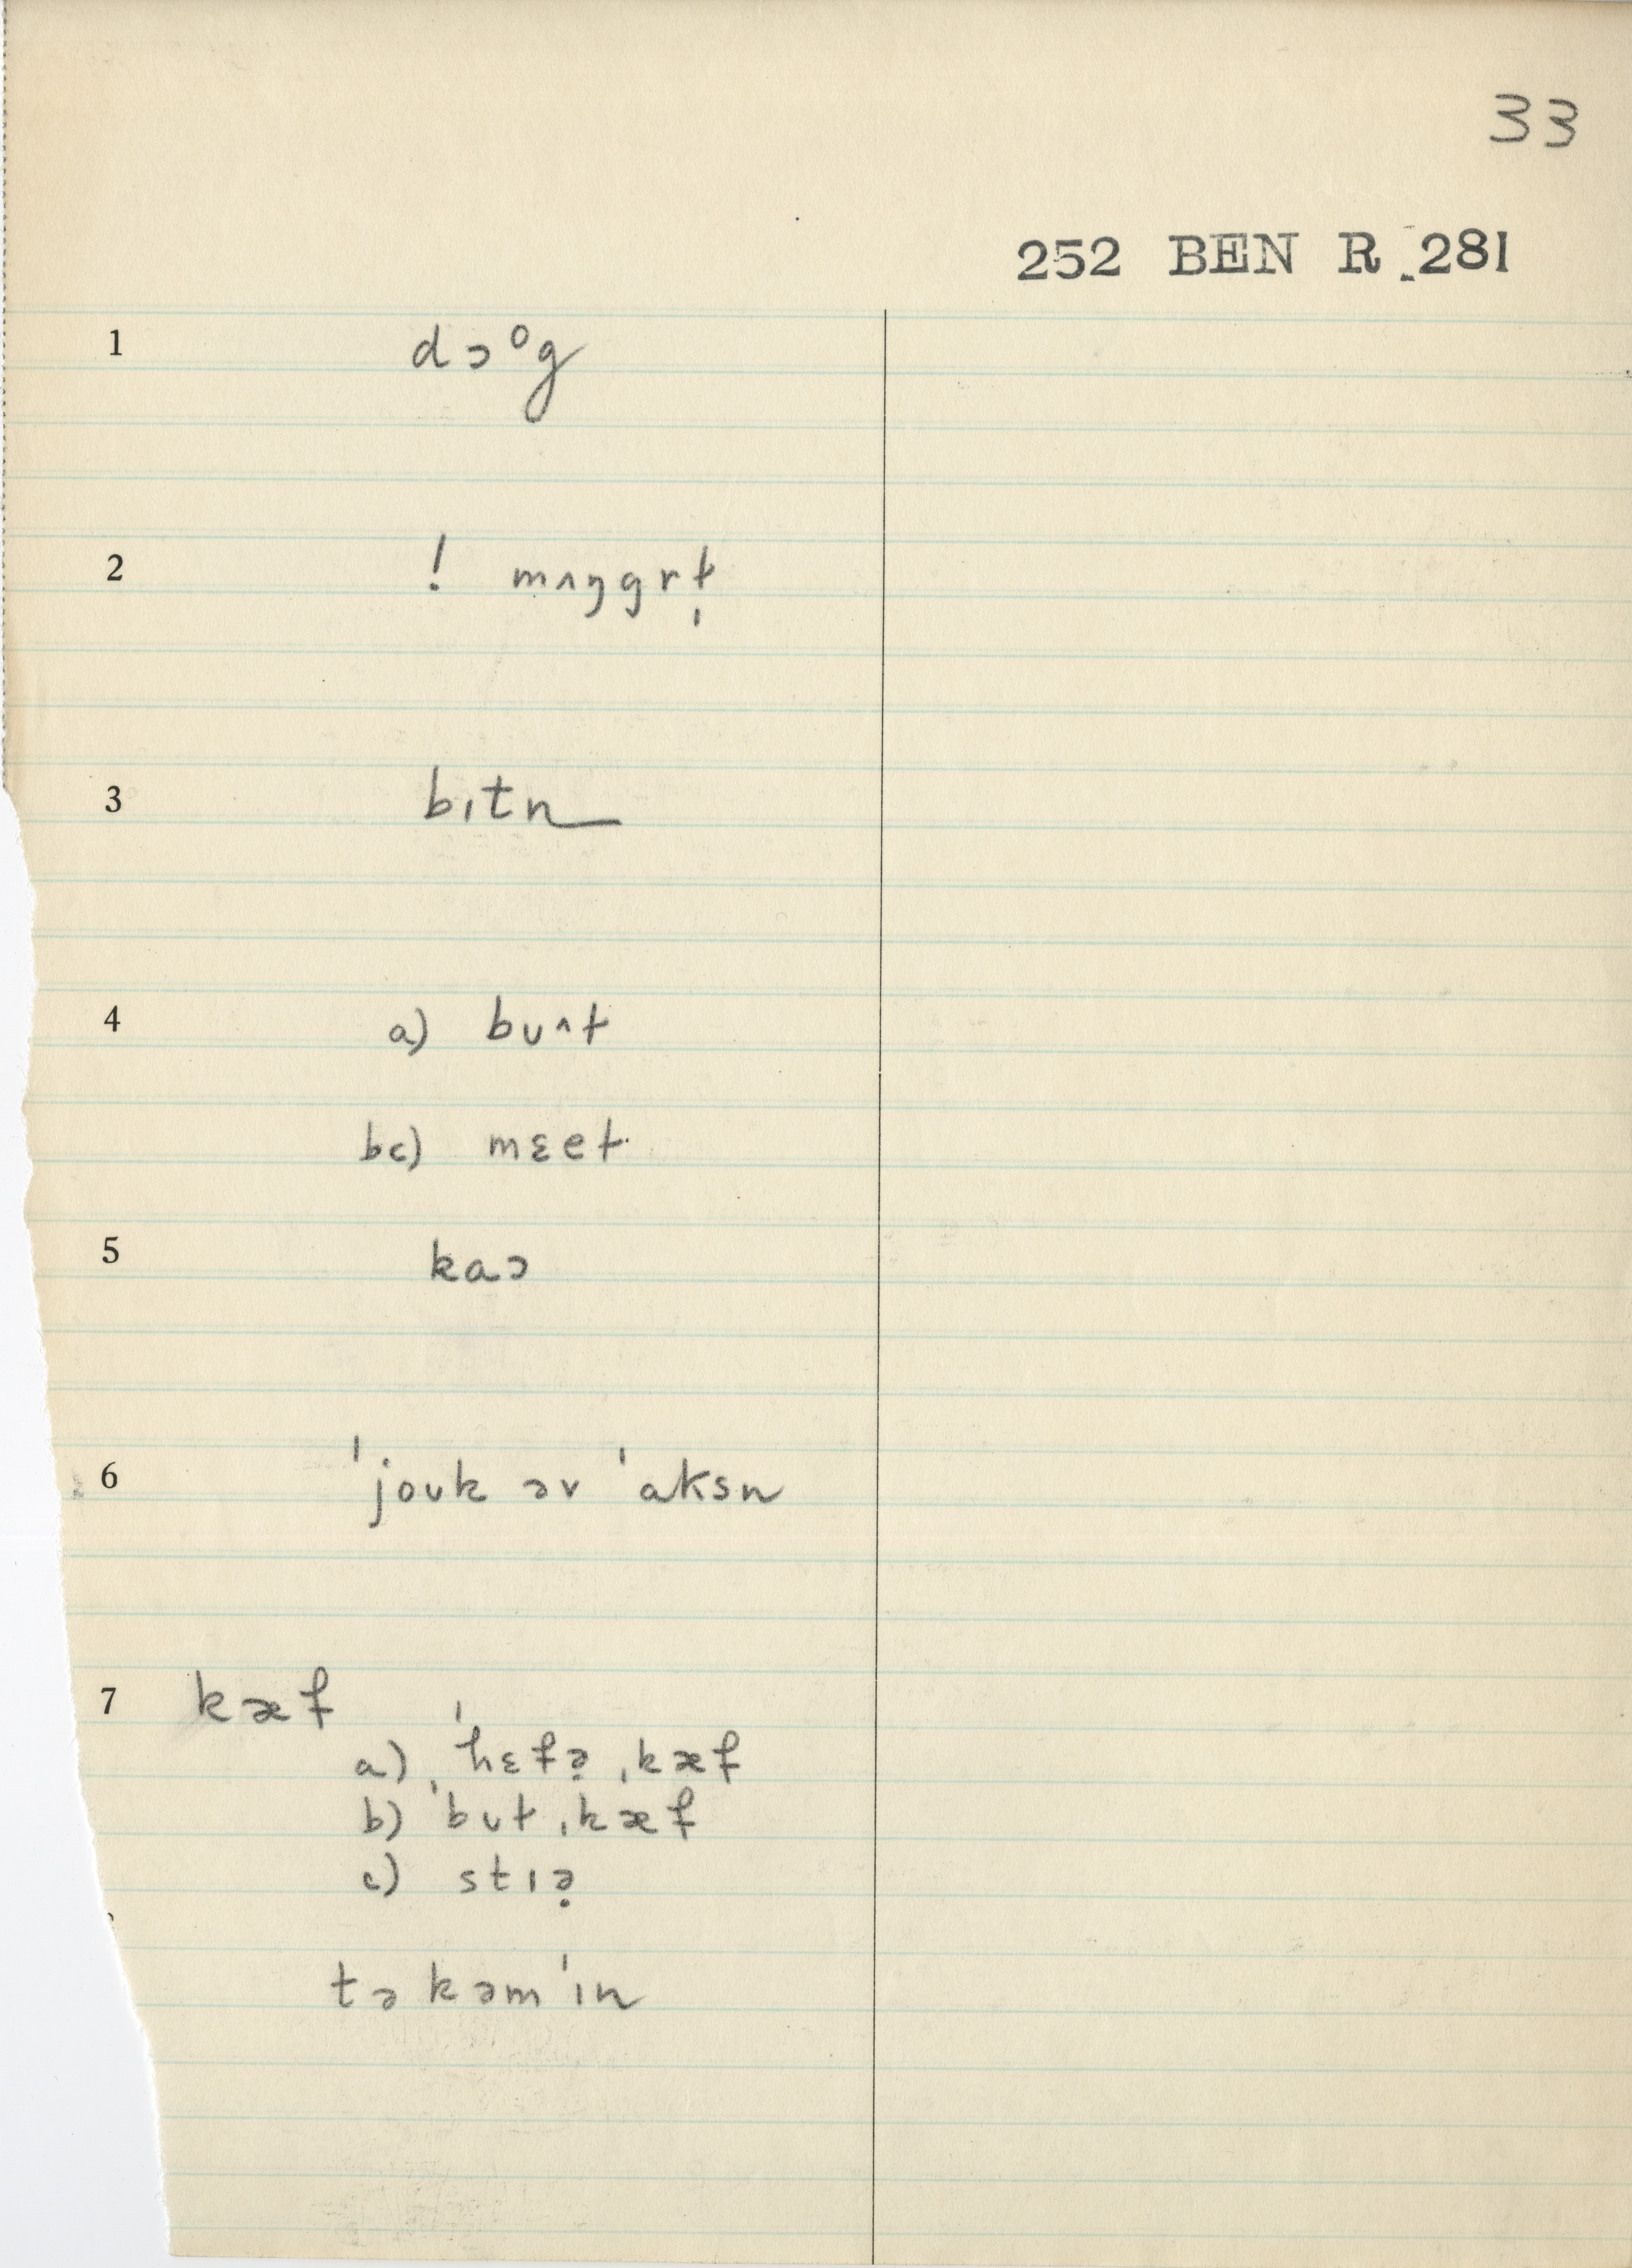 33
252 BEN R 281
1 dɔᵒg
2 ! mʌŋgrt̩
3 bɪtn
4 a) bʊʌt
bc) mɛet
5 kaɔ
6 ˈjoʊk əv ˈaksn
7 kæf
a) ˈhɛfə̣ ˌkæf
b) ˈbʊt ˌkæf
c) stɪə̣
tə kəm ˈɪn